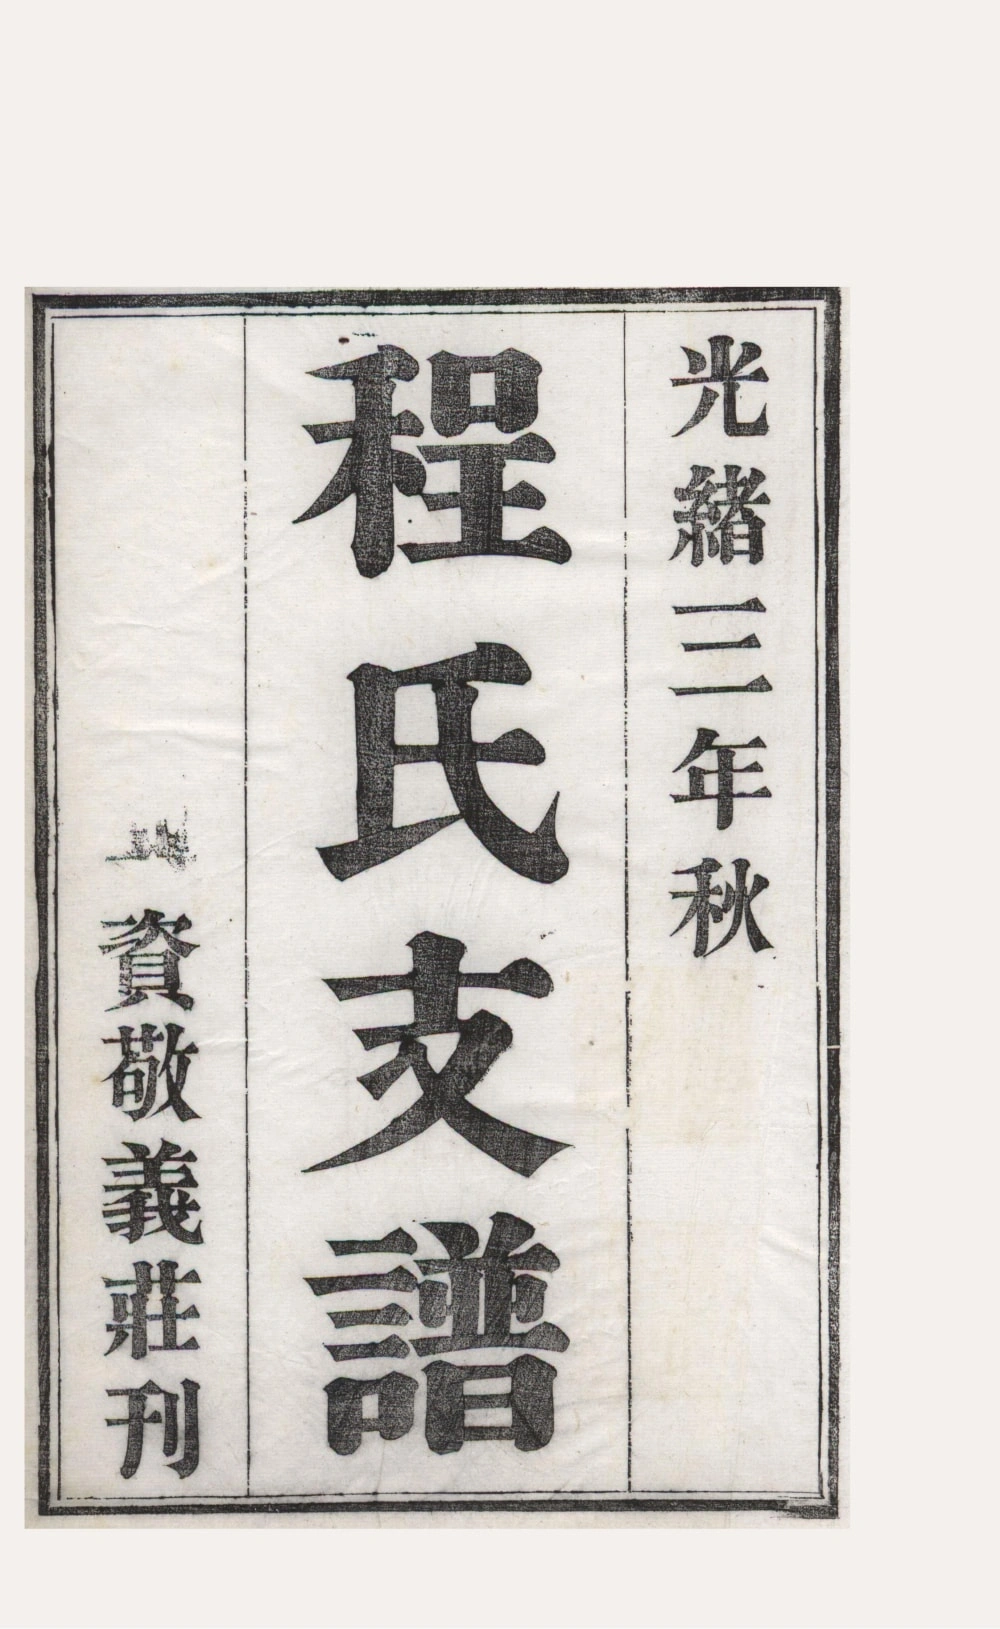 光緒三年秋
程氏支譜
資敬義莊刊